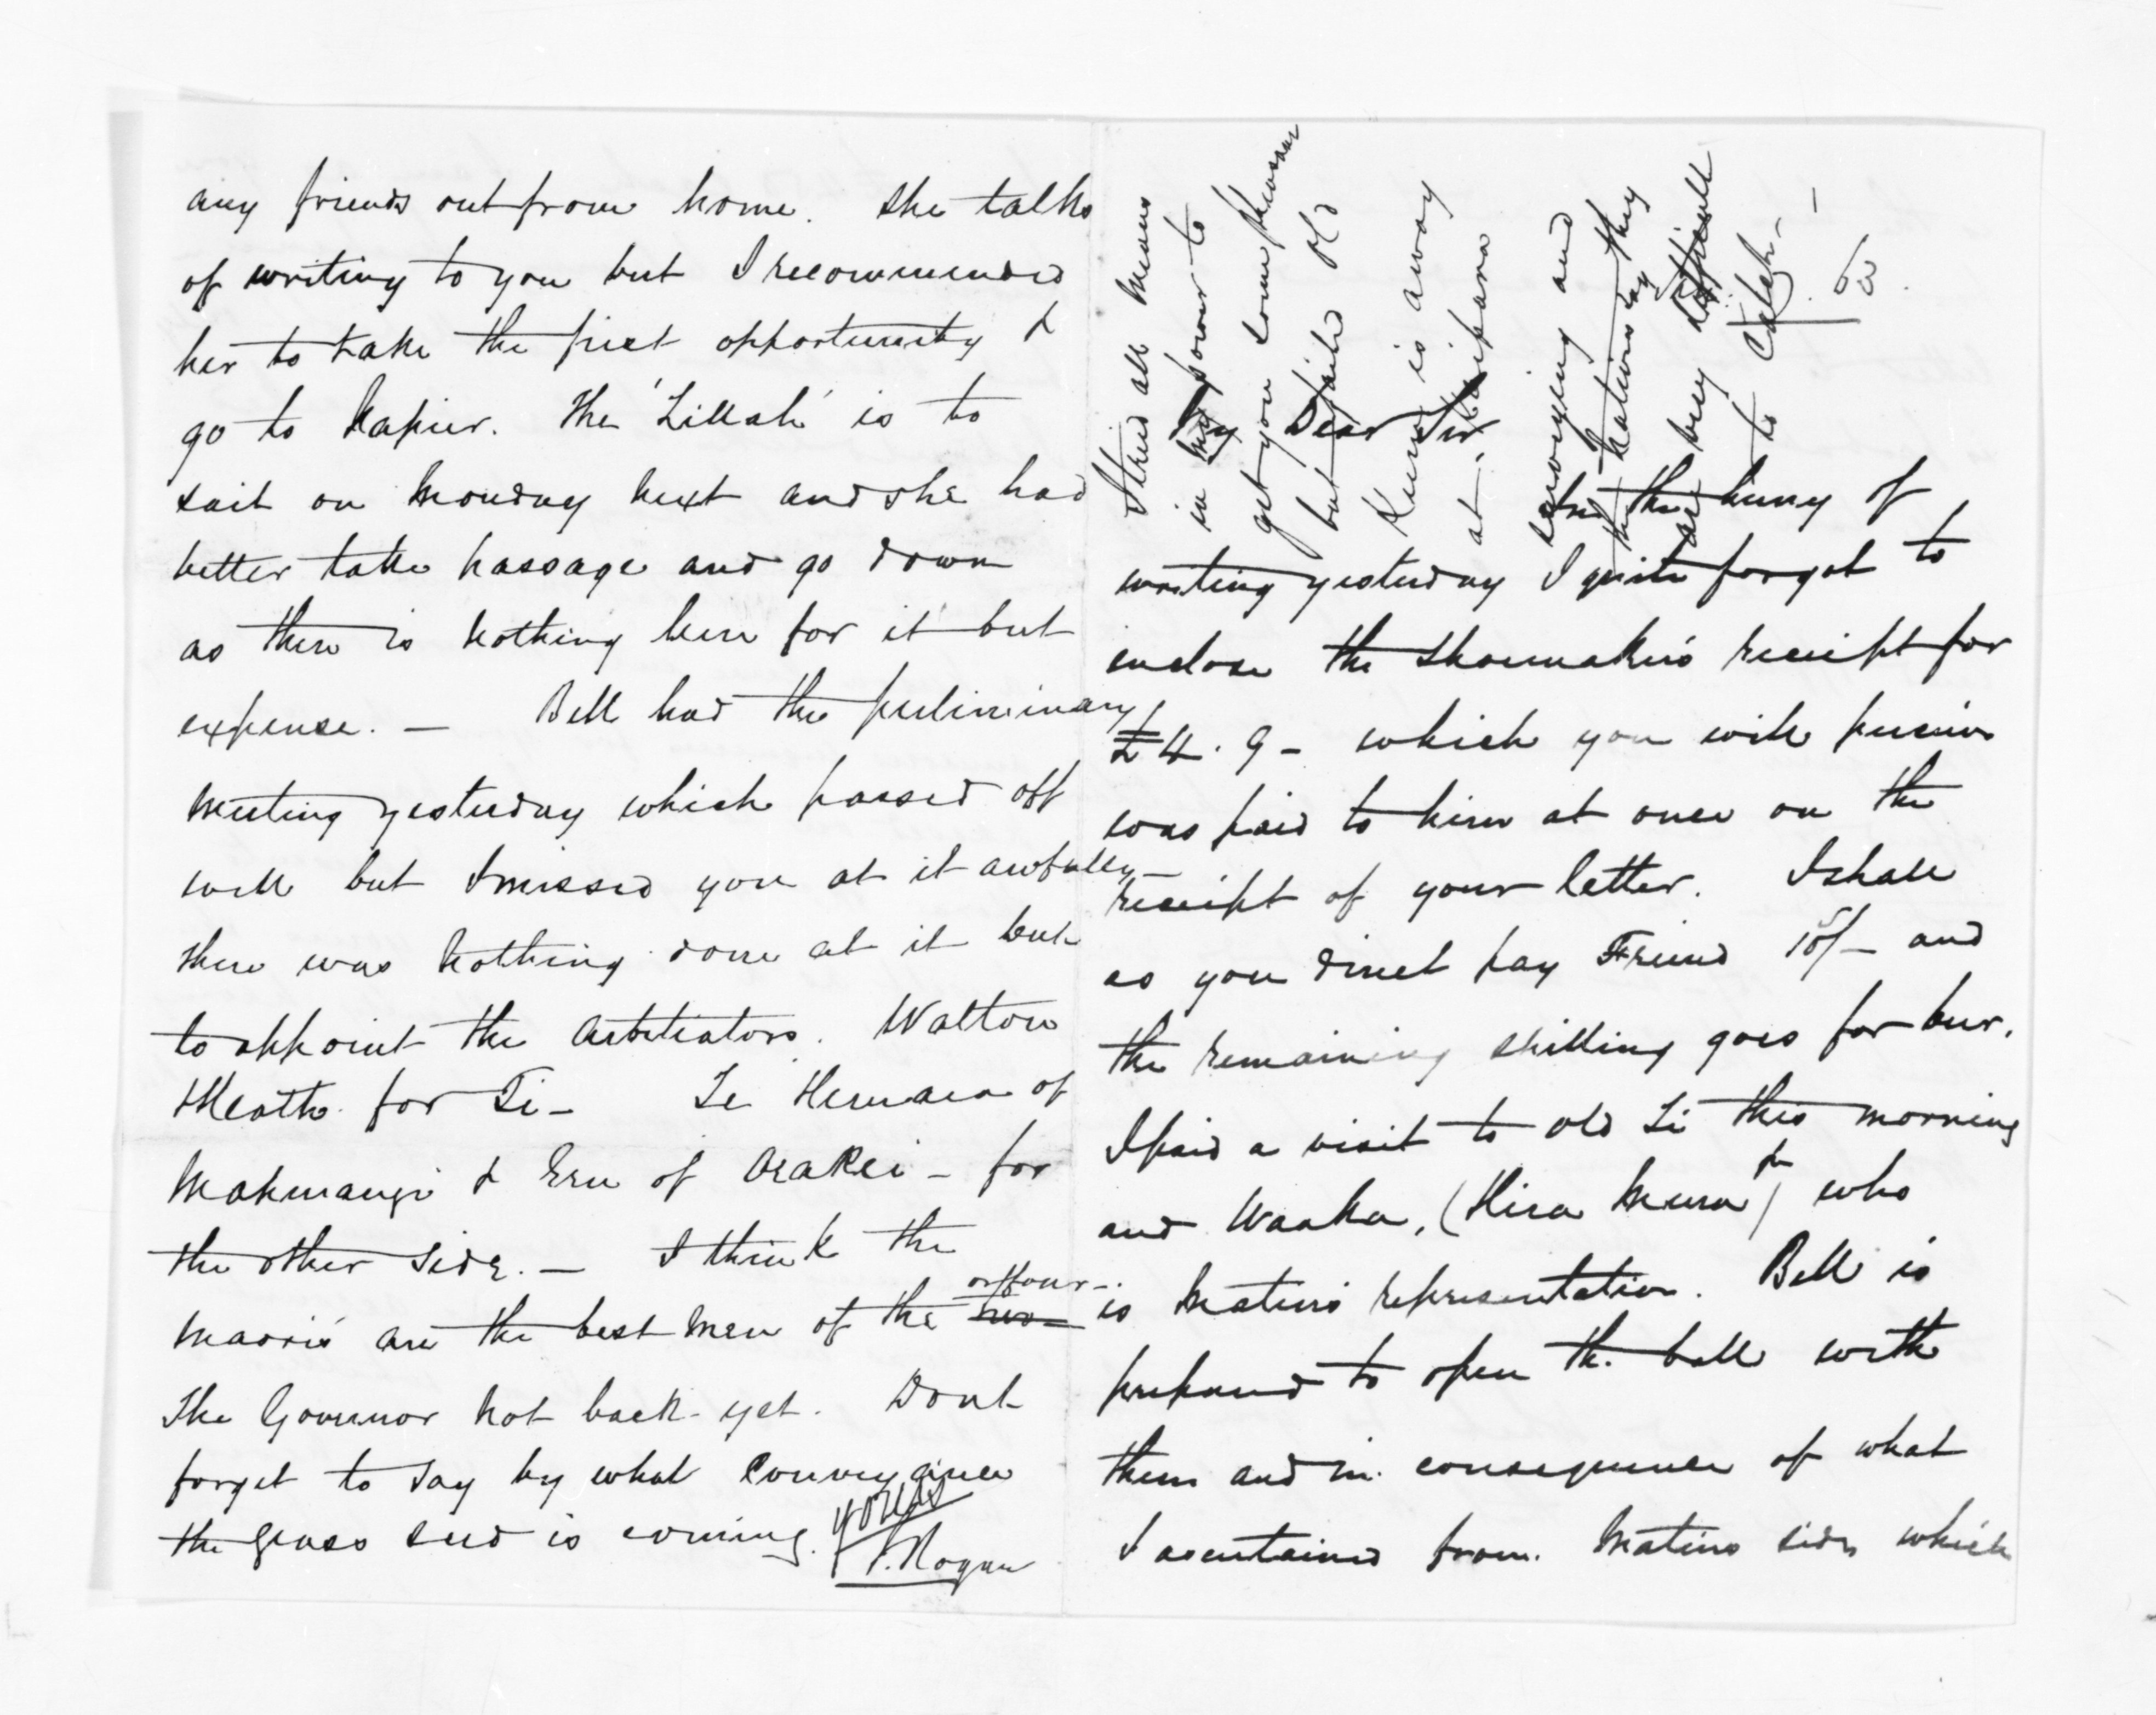 any friends out from home. She talks
of writing to you but I recommended
her to take the first opportunity &
go to Napier. The 'Zillah' is to
sail on Monday next and she had
better take passage and go down
as there is nothing here for it but
expense. — Bell had the preliminary
meeting yesterday which passed off
well but I missed you at it awfully —
there was nothing done at it but
to appoint the Arbitrators. Walton
Heath for Ti — Te Hemara of
Mahurangi & Eru of Orakei — for
the other side. — I think the
Maoris are the best men of the four —
The Governor not back yet. Dont
forget to say by what conveyance
the grass seed is coming.
yours
J. Rogan
My Dear Sir
In the hurry of
writing yesterday I quite forgot to
enclose the Shoemaker's receipt for
£4. 9 - which you will perceive
was paid to him at once on the
receipt of your letter. I shall
as you direct pay Friend 10/- and
the remaining shilling goes for beer.
I paid a visit to old Ti this morning
and Waaka, (Hira Mura) who
is Matini's representative. Bell is
prepared to open the ball with
them and in consequence of what
I ascertained from Matini's side which
I tried all means
in my power to
get you some
but failed Old
is away
at Kaipara
surveying and
the natives say they
are very difficult
to Catch. —